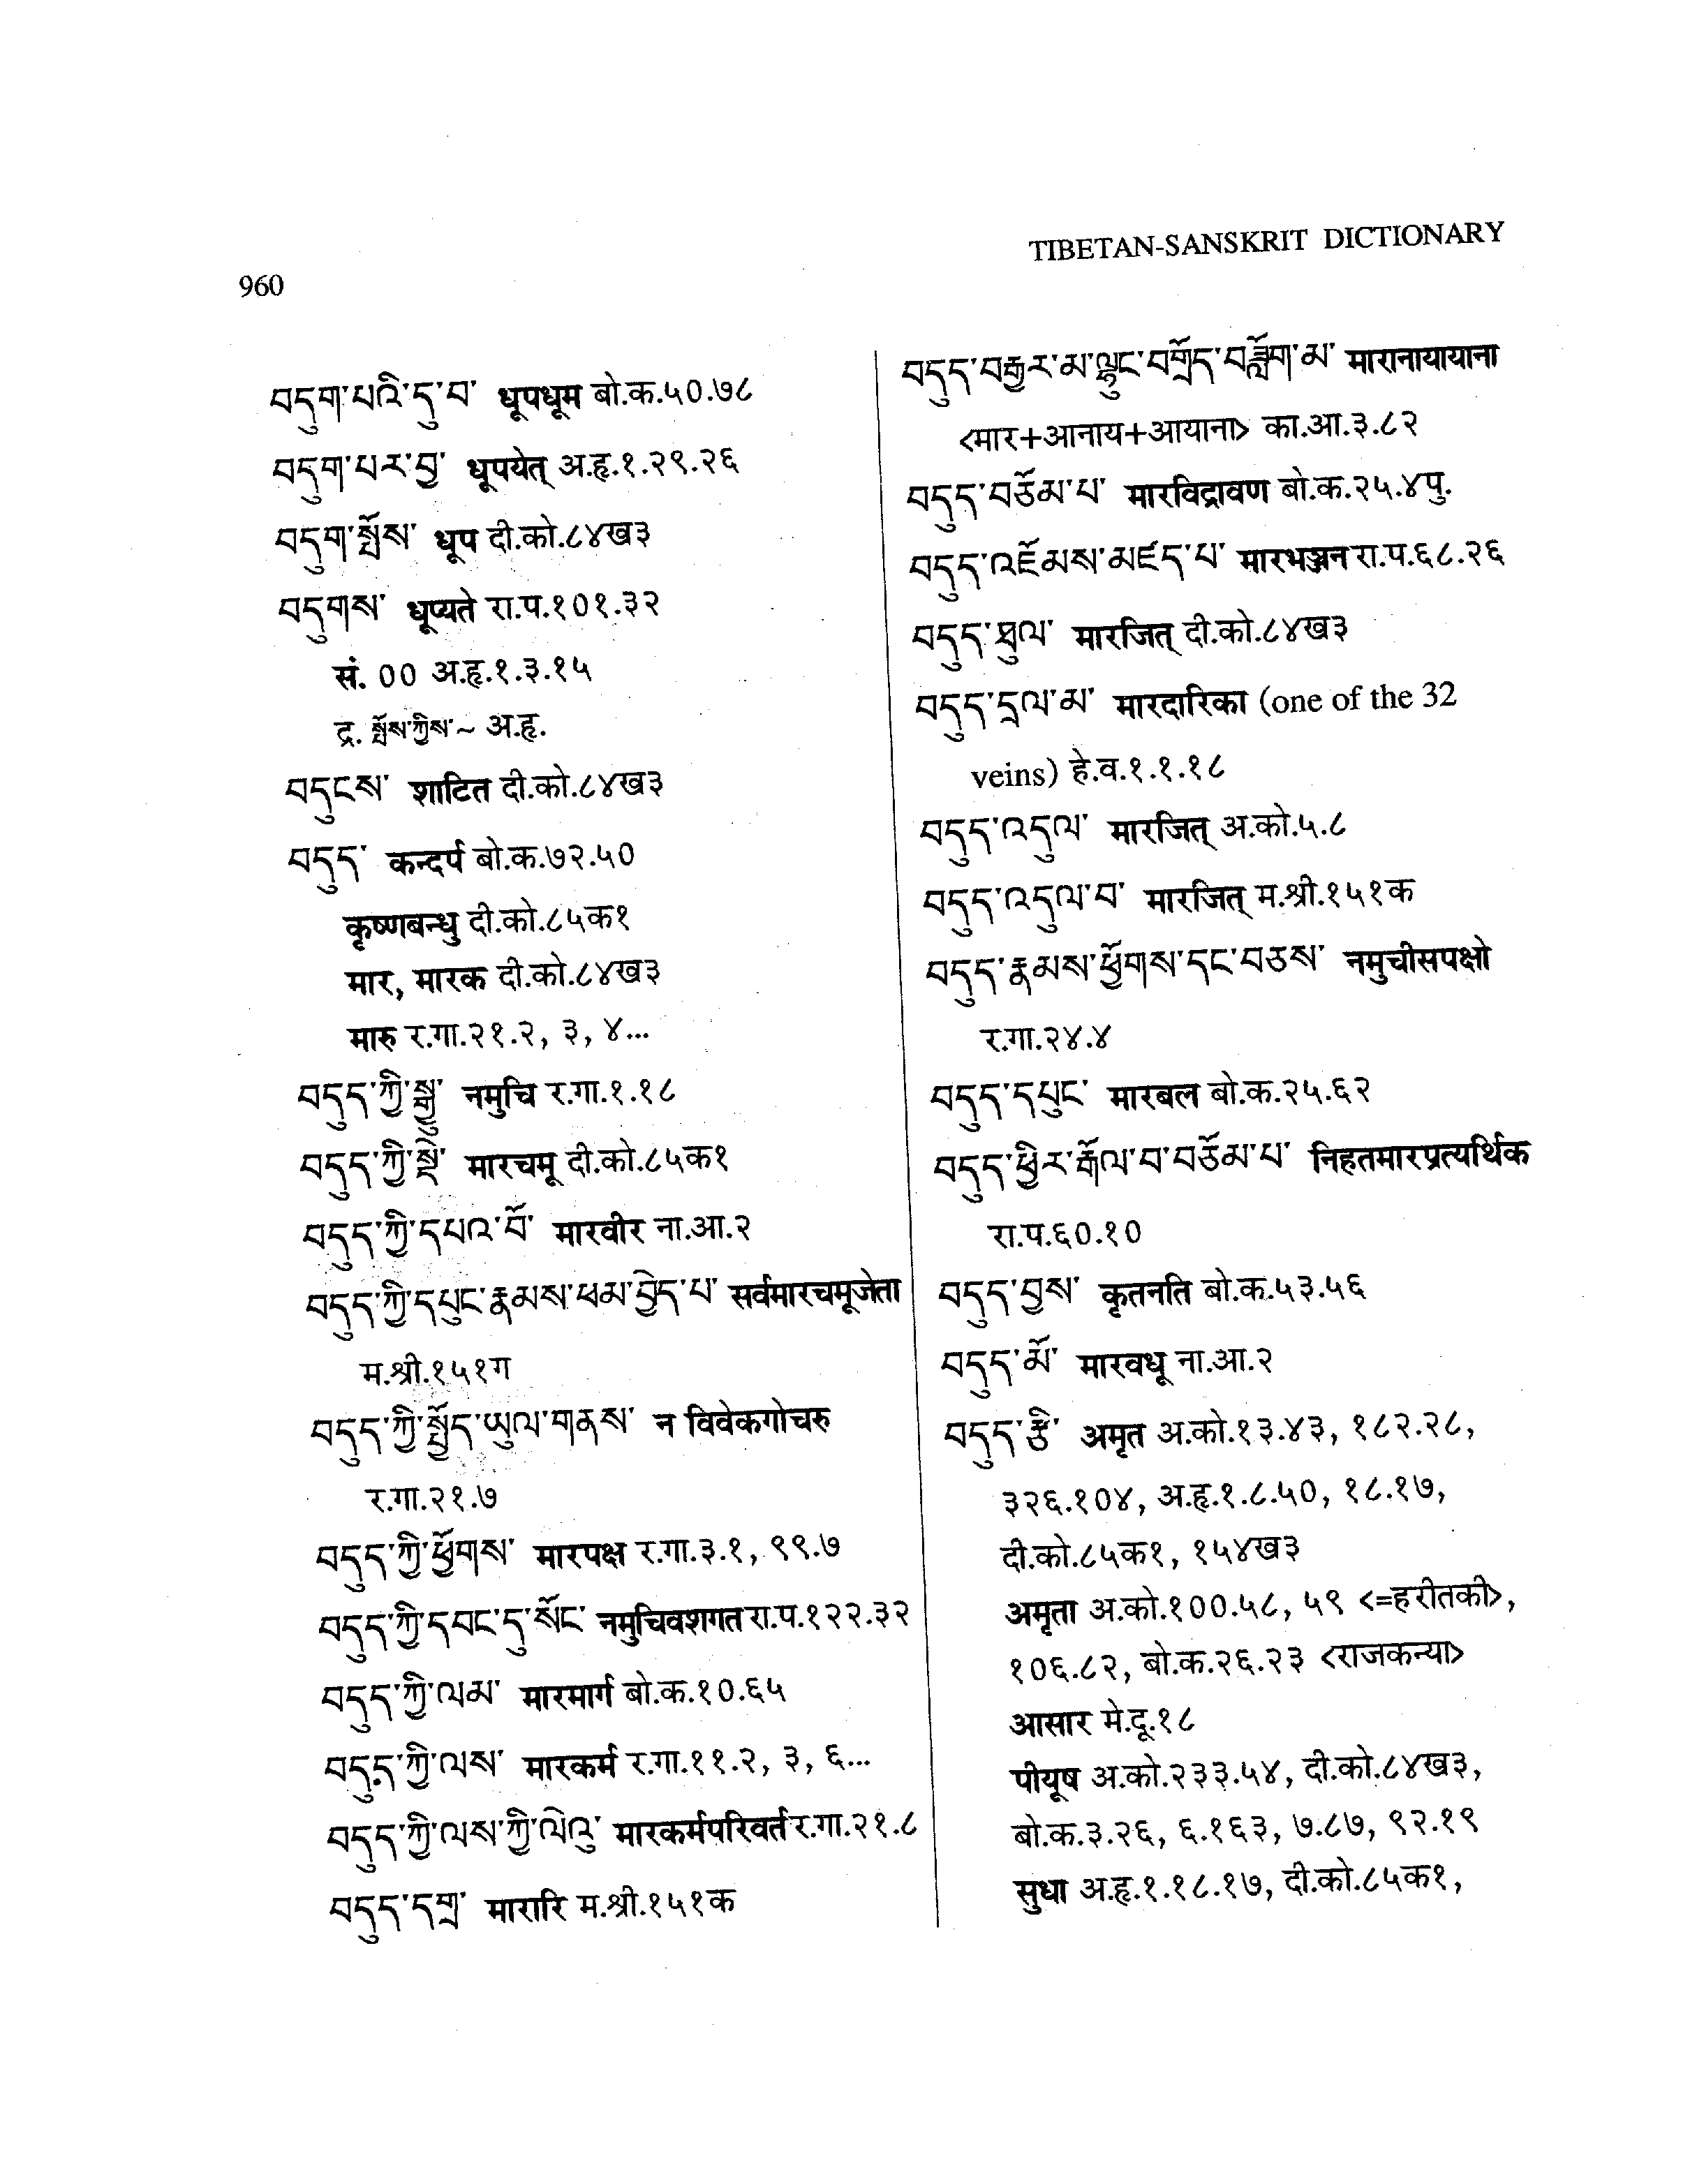 TIBETAN-SANSKRIT DICTIONARY
960
བདུག་པའི་དུ་བ་ धूपधूम बो.क.५०.७८
བདུག་པར་བྱ་ धूपयेत् अ.हृ.१.२९.२६
བདུག་སྤོས་ धूप दी.को.८४ख३
བདུགས་ धूप्यते रा.प.१०१.३२
सं. 00 अ.हृ.१.३.१५
द्र. སྤོས་ཀྱིས་~ अ.हृ.
བདུངས་ शाटित दी.को.८४ख३
བདུད་ कन्दर्प बो.क.७२.५०
कृष्णबन्धु दी.को.८५क१
मार, मारक दी.को.८४ख३
मारु र.गा.२१.२, ३, ४...
བདུད་ཀྱི་སྒྱུ་ नमुचि र.गा.१.१८
བདུད་ཀྱི་སྡེ་ मारचमू दी.को.८५क१
བདུད་ཀྱི་དཔའ་བོ་ मारवीर ना.आ.२
བདུད་ཀྱི་དཔུང་རྣམས་ཕམ་བྱེད་པ་ सर्वमारचमूजेता
म.श्री.१५१ग
བདུད་ཀྱི་སྤྱོད་ཡུལ་གནས་ न विवेकगोचरु
र.गा.२१.७
བདུད་ཀྱི་ཕྱོགས་ मारपक्ष र.गा.३.१, ९९.७
བདུད་ཀྱི་དབང་དུ་སོང་ नमुचिवशगत रा.प.१२२.३२
བདུད་ཀྱི་ལམ་ मारमार्ग बो.क.१०.६५
བདུད་ཀྱི་ལས་ मारकर्म र.गा.११.२, ३, ६...
བདུད་ཀྱི་ལས་ཀྱི་ལེའུ་ मारकर्मपरिवर्त र.गा.२१.८
བདུད་དགྲ་ मारारि म.श्री.१५१क
བདུད་བརྒྱར་མ་ལྷུང་བགྲོད་བཟློག་མ་ मारानायायाना
<मार+आनाय+आयाना> का.आ.३.८२
བདུད་བཅོམ་པ་ मारविद्रावण बो.क.२५.४पु.
བདུད་འཇོམས་མཛད་པ་ मारभञ्जन रा.प.६८.२६
བདུད་ཐུལ་ मारजित् दी.को.८४ख३
བདུད་དྲལ་མ་ मारदारिका (one of the 32
veins) हे.व.१.१.१८
བདུད་འདུལ་ मारजित् अ.को.५.८
བདུད་འདུལ་བ་ मारजित् म.श्री.१५१क
བདུད་རྣམས་ཕྱོགས་དང་བཅས་ नमुचीसपक्षो
र.गा.२४.४
བདུད་དཔུང་ मारबल बो.क.२५.६२
བདུད་ཕྱིར་རྒོལ་བ་བཅོམ་པ་ निहतमारप्रत्यर्थिक
रा.प.६०.१०
བདུད་བྱས་ कृतनति बो.क.५३.५६
བདུད་མོ་ मारवधू ना.आ.२
བདུད་རྩི་ अमृत अ.को.१३.४३, १८२.२८,
३२६.१०४, अ.हृ.१.८.५०, १८.१७,
दी.को.८५क१, १५४ख३
अमृता अ.को.१००.५८, ५९ <=हरीतकी>,
१०६.८२, बो.क.२६.२३ <राजकन्या>
आसार मे.दू.१८
पीयूष अ.को.२३३.५४, दी.को.८४ख३,
बो.क.३.२६, ६.१६३, ७.८७, ९२.१९
सुधा अ.हृ.१.१८.१७, दी.को.८५क१,